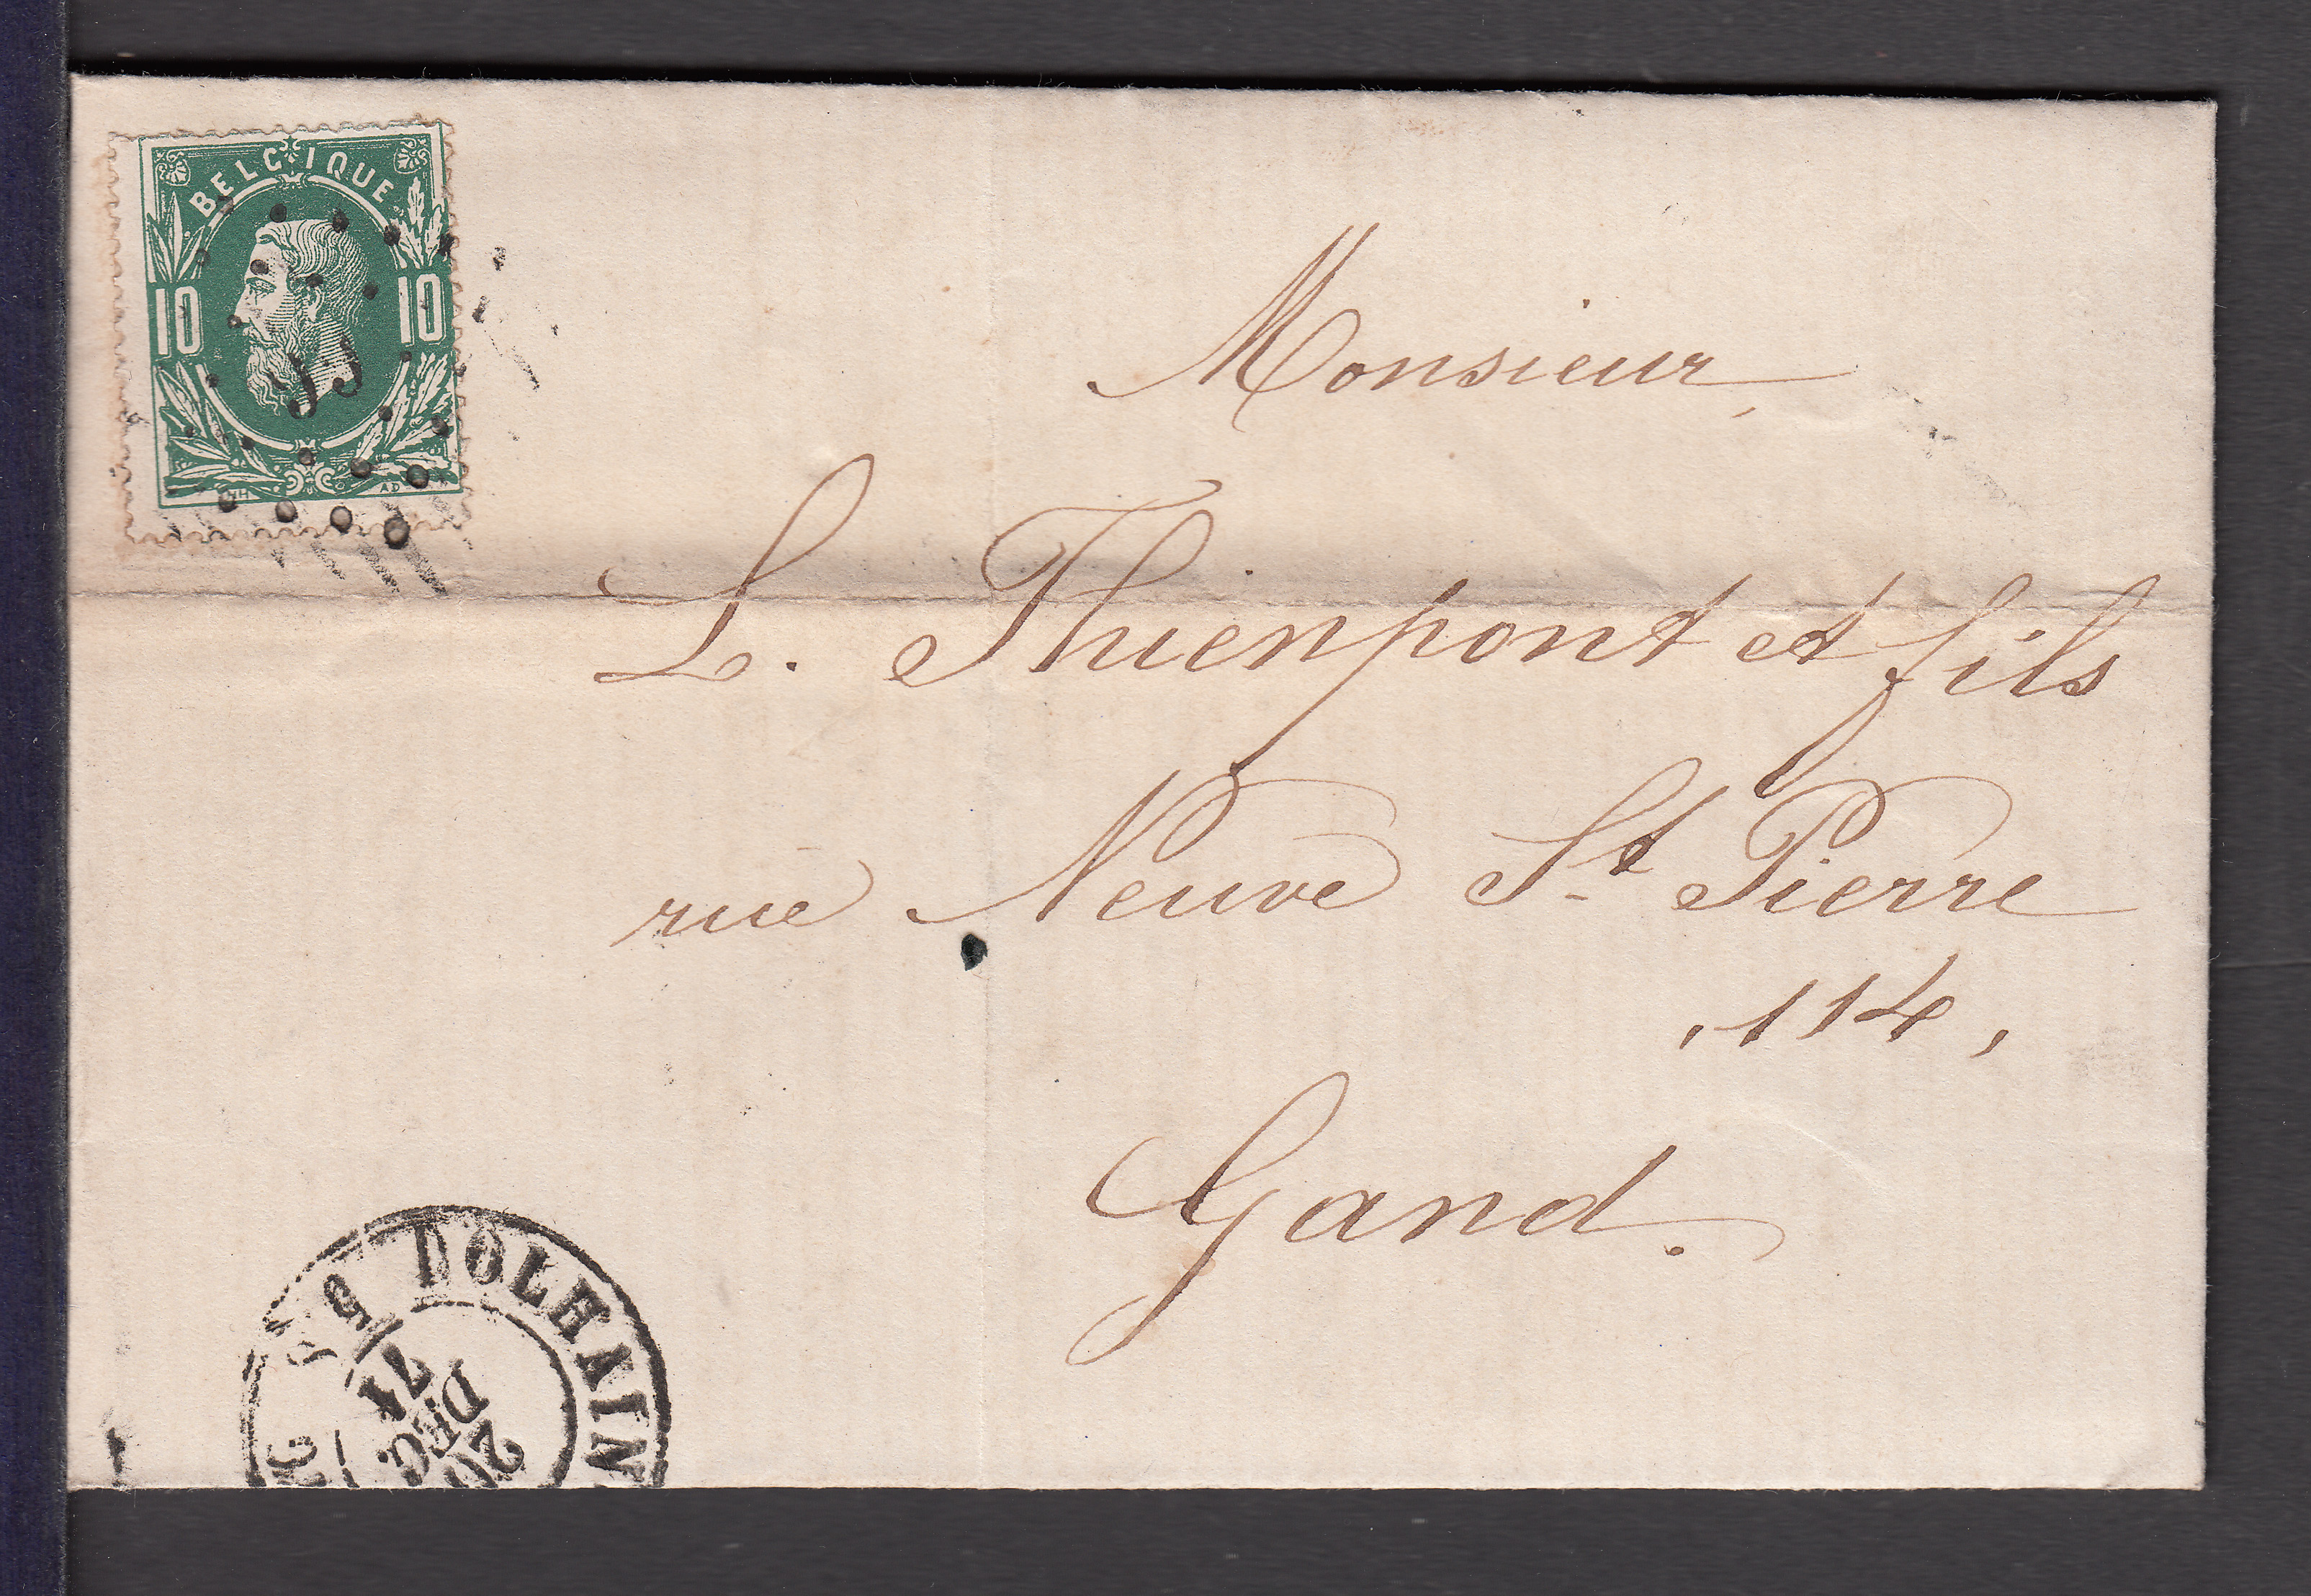 BELGIQUE
10 10
Monsieur,
L. Thienpont et fils
rue Neuve St Pierre
, 114,
Gand.
DOLHAIN
DEC.
71